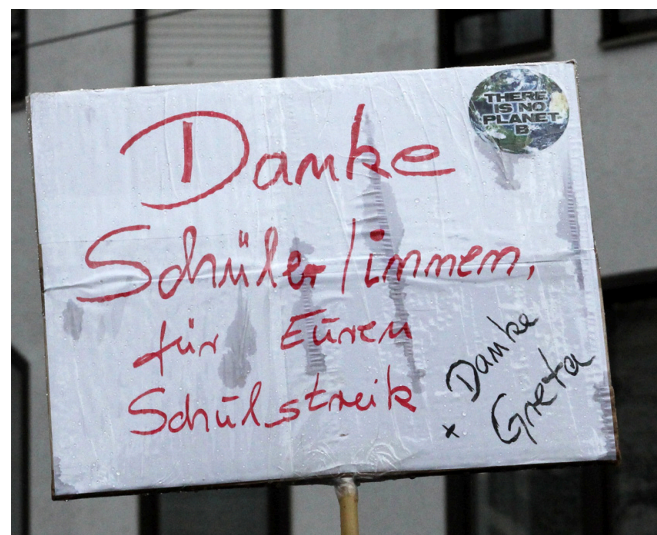 Danke
THERE
IS NO
PLANET
B
Schüler/innen,
für Euren
Schulstreik
x Danke
Greta